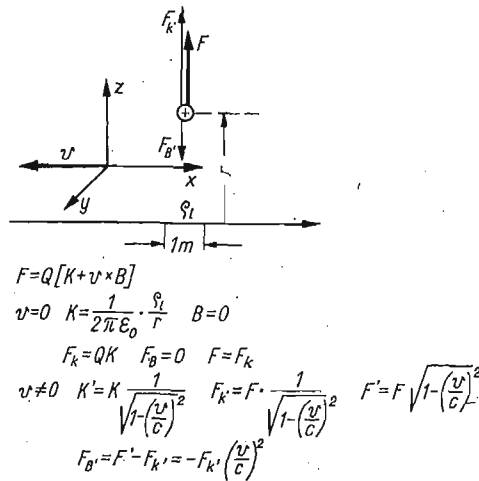 F_k'
F
z
F_B'
v
x
r
y
ϱ_l
1m
F=Q[K+v×B]
v=0 K=\frac{1}{2πε_0}·\frac{ϱ_l}{r} B=0
F_k=QK F_B=0 F=F_k
v≠0 K'=K\frac{1}{\sqrt{1-(\frac{v}{c})^2}} F_k'=F·\frac{1}{\sqrt{1-(\frac{v}{c})^2}} F'=F\sqrt{1-(\frac{v}{c})^2}
F_B'=F'-F_k'=-F_k'(\frac{v}{c})^2